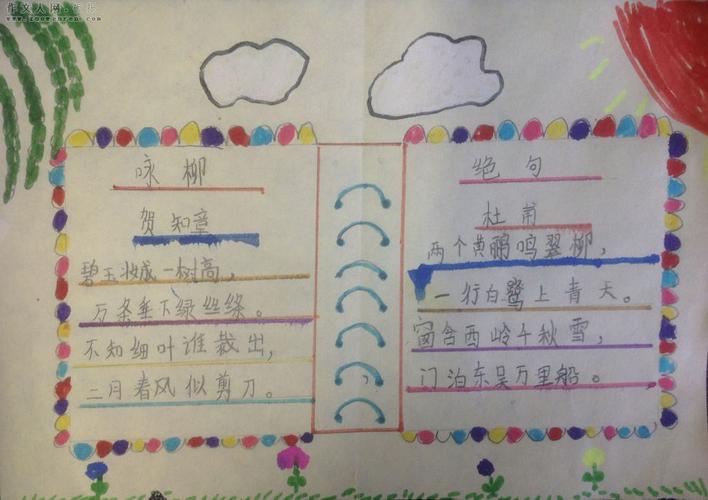 作文人网
www.zuowenren.com
咏柳
贺知章
碧玉妆成一树高,
万条垂下绿丝绦。
不知细叶谁裁出,
二月春风似剪刀。
绝句
杜甫
两个黄鹂鸣翠柳,
一行白鹭上青天。
窗含西岭千秋雪,
门泊东吴万里船。